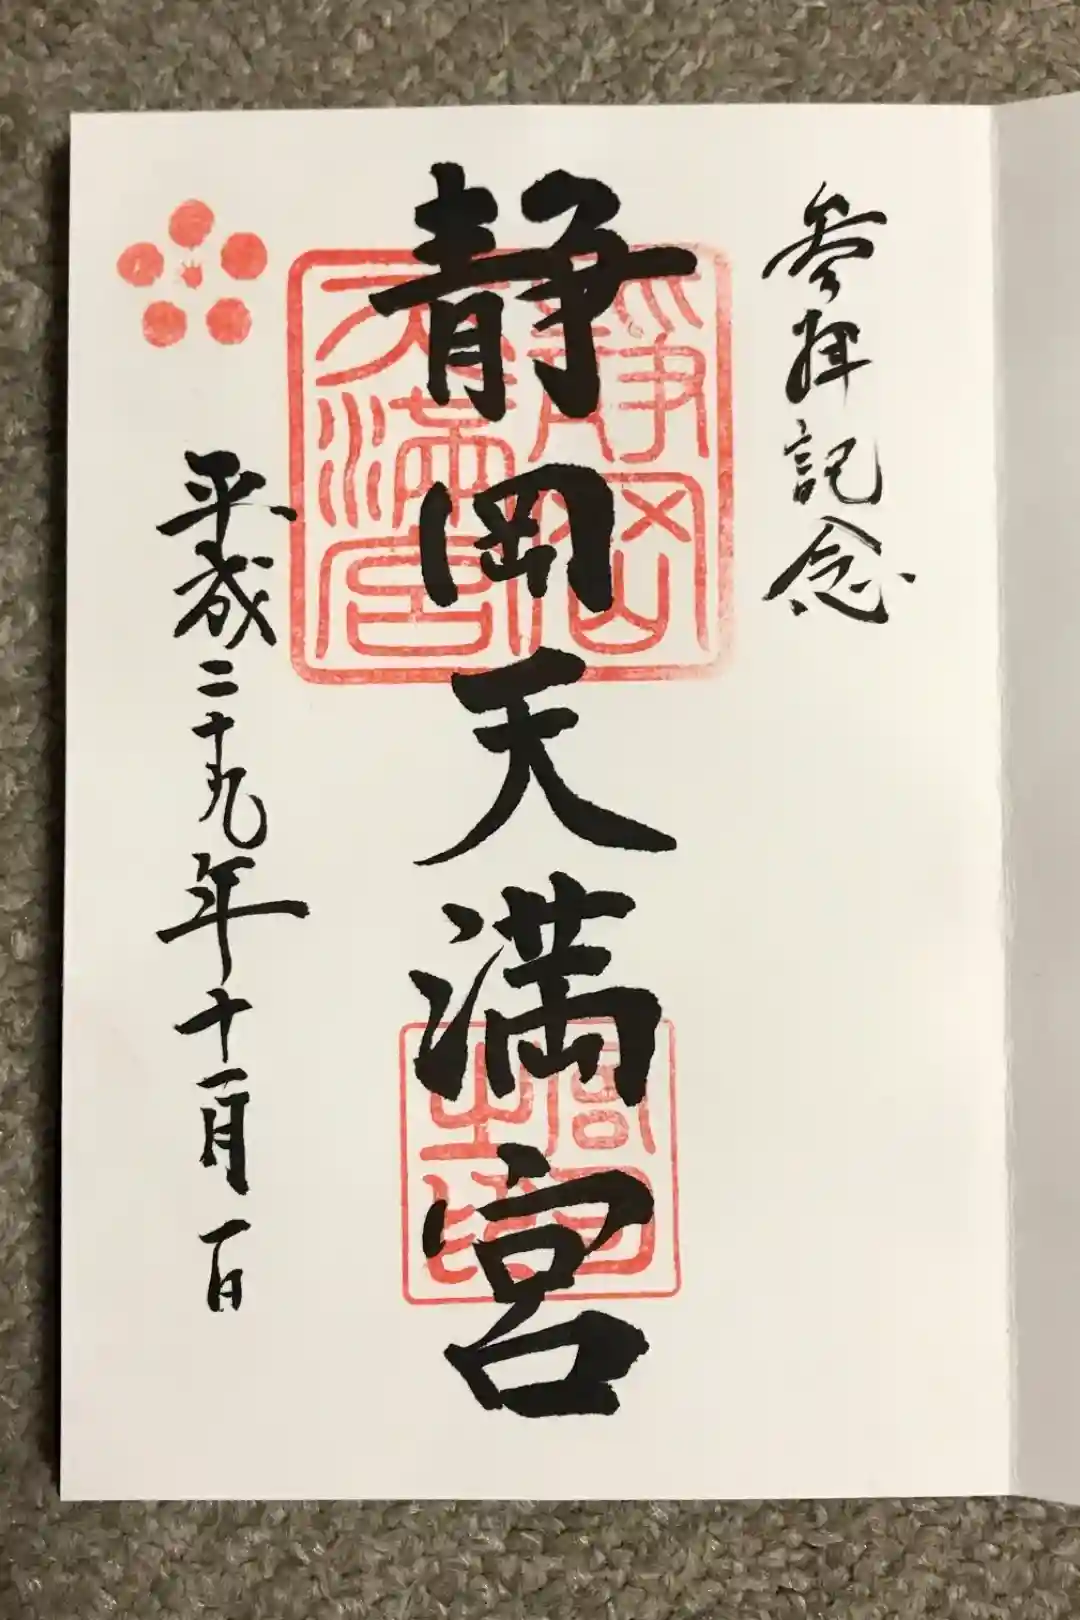 参拝記念
静岡天満宮
静岡天満宮
平成二十九年十一月一日